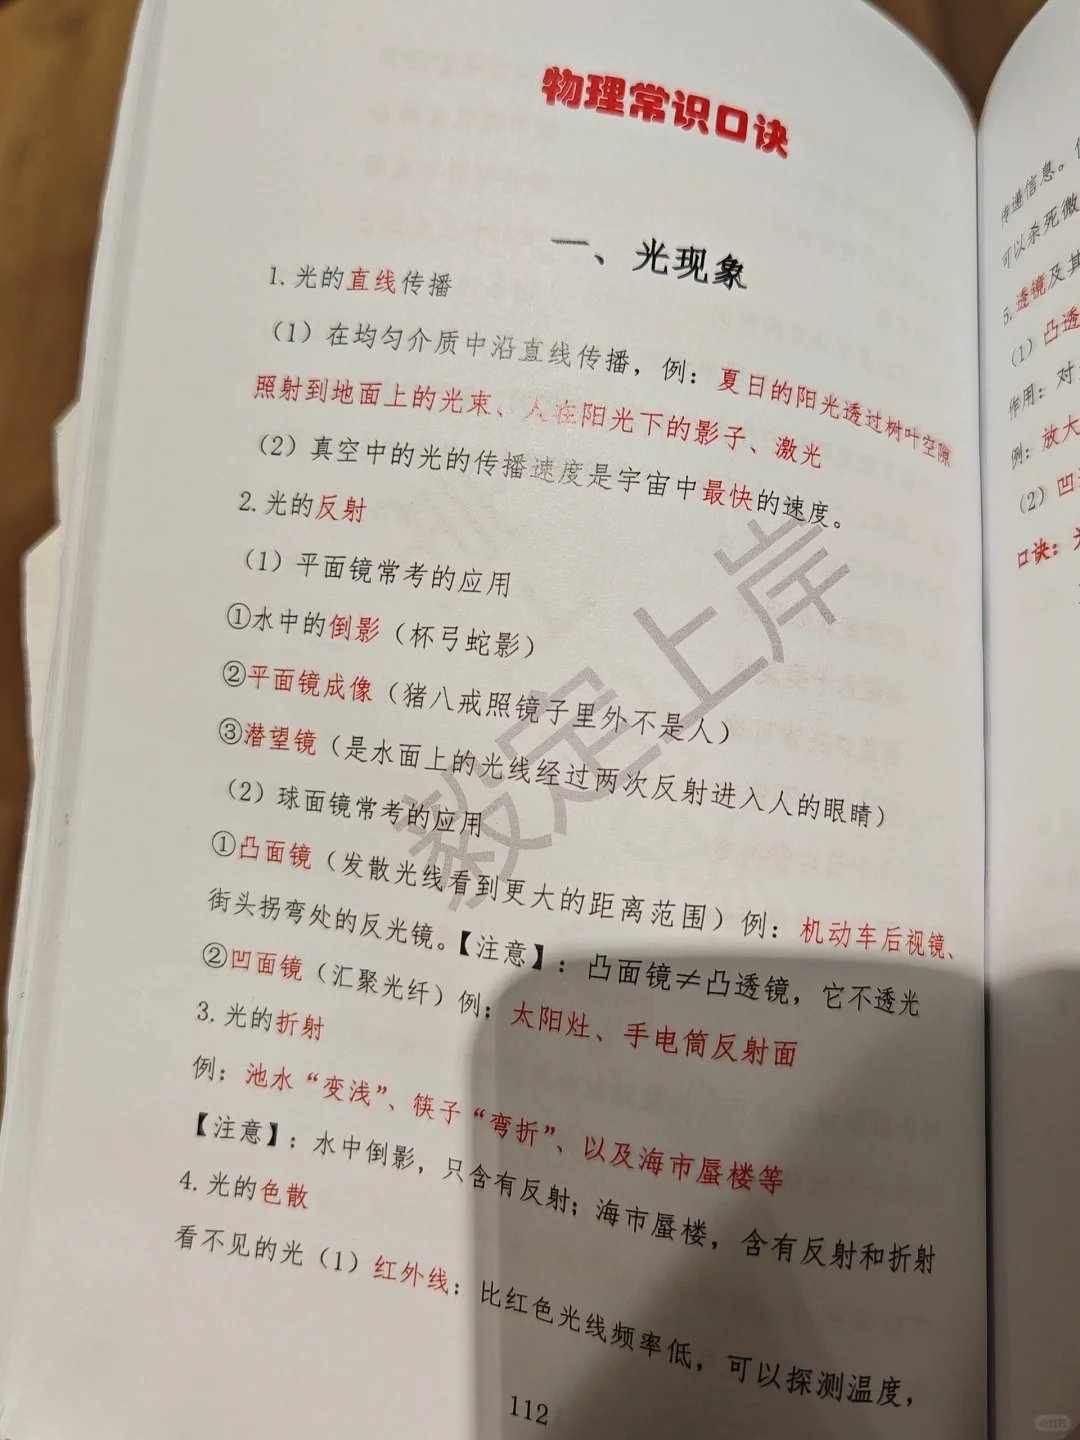 物理常识口诀
一、光现象
1. 光的直线传播
（1）在均匀介质中沿直线传播，例：夏日的阳光透过树叶空隙
照射到地面上的光束、人在阳光下的影子、激光
（2）真空中的光的传播速度是宇宙中最快的速度。
2. 光的反射
（1）平面镜常考的应用
①水中的倒影（杯弓蛇影）
②平面镜成像（猪八戒照镜子里外不是人）
③潜望镜（是水面上的光线经过两次反射进入人的眼睛）
（2）球面镜常考的应用
①凸面镜（发散光线看到更大的距离范围）例：机动车后视镜、
街头拐弯处的反光镜。【注意】：凸面镜≠凸透镜，它不透光
②凹面镜（汇聚光纤）例：太阳灶、手电筒反射面
3. 光的折射
例：池水“变浅”、筷子“弯折”、以及海市蜃楼等
【注意】：水中倒影，只含有反射；海市蜃楼，含有反射和折射
4. 光的色散
看不见的光（1）红外线：比红色光线频率低，可以探测温度，
112
毅定上岸
传递信息。
可以杀死微
5. 透镜及其
（1）凸透
作用：对
例：放大
（2）凹
口诀：
小红书